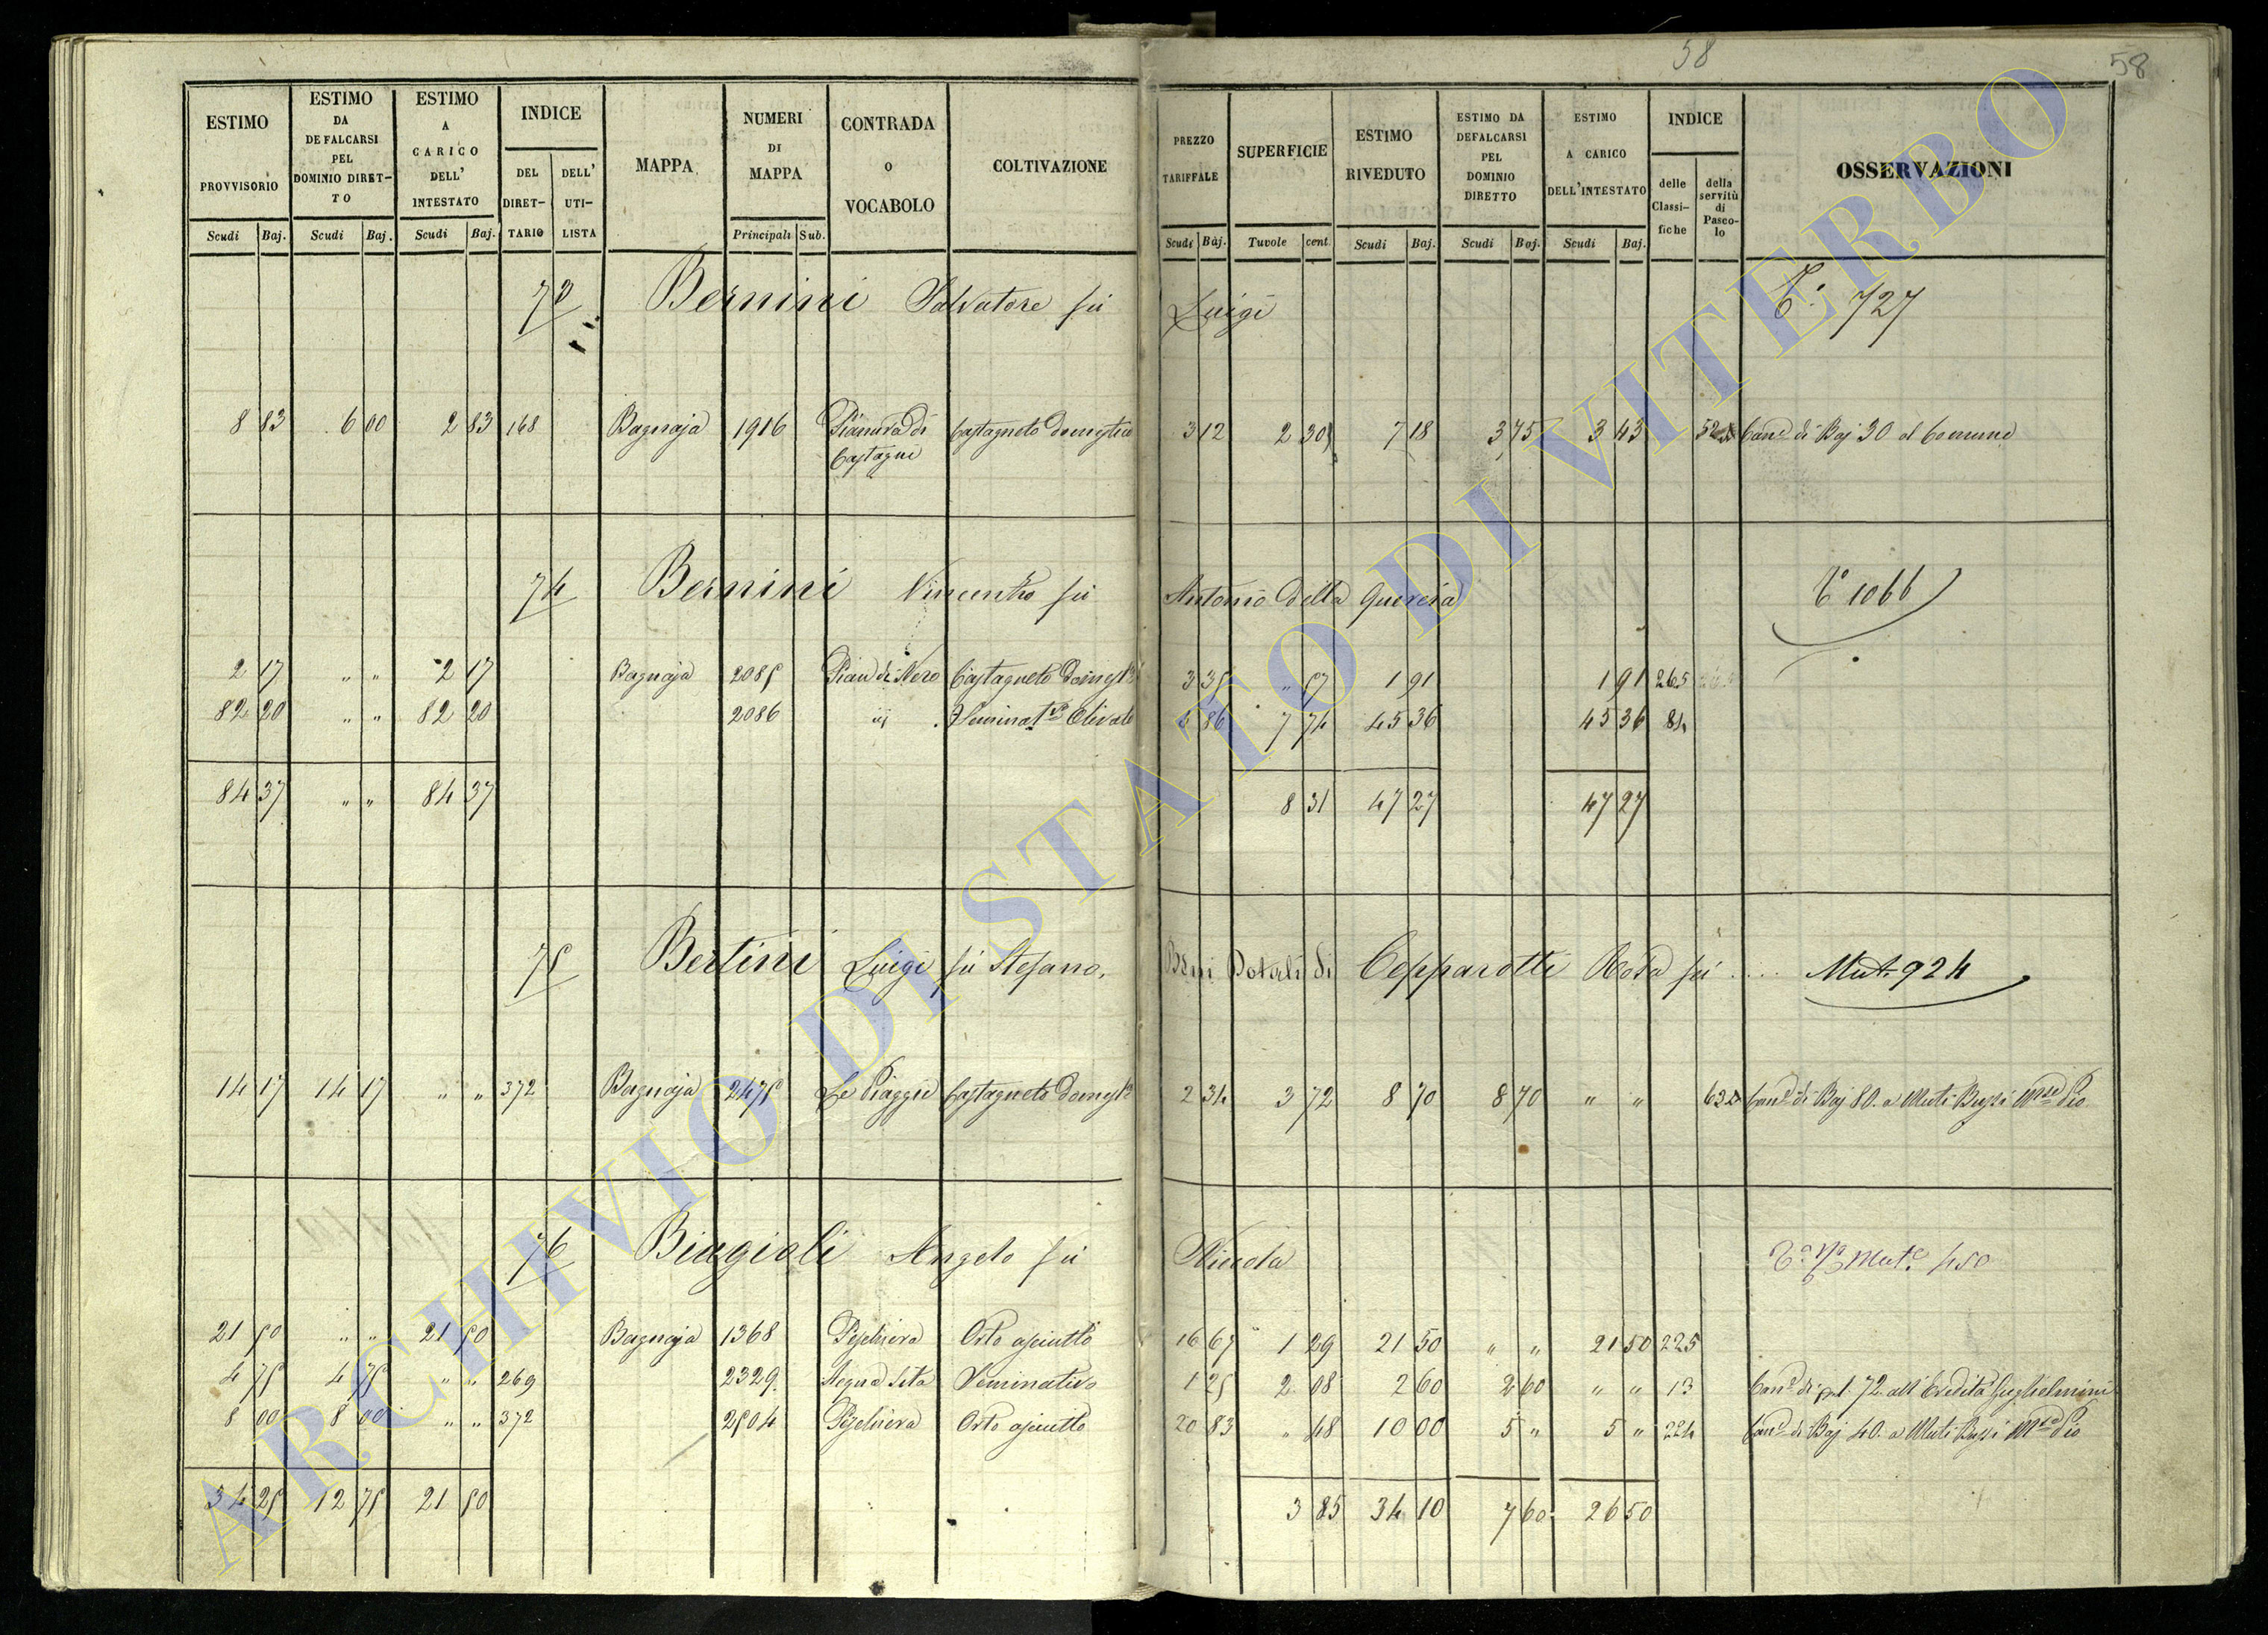 58
58
ESTIMO PROVVISORIO Scudi Baj.
ESTIMO DA DEFALCARSI PEL DOMINIO DIRET-TO Scudi Baj.
ESTIMO A CARICO DELL' INTESTATO Scudi Baj.
INDICE DEL DIRET-TARIO DELL' UTI-LISTA
MAPPA
NUMERI DI MAPPA Principali Sub.
CONTRADA o VOCABOLO
COLTIVAZIONE
PREZZO TARIFFALE Scudi Baj.
SUPERFICIE Tavole cent.
ESTIMO RIVEDUTO Scudi Baj.
ESTIMO DA DEFALCARSI PEL DOMINIO DIRETTO Scudi Baj.
ESTIMO A CARICO DELL'INTESTATO Scudi Baj.
INDICE delle Classi-fiche della servitù di Pasco-lo
OSSERVAZIONI
Bernini Salvatore fu Luigi 727
8 83 6 00 2 83 168 Bagnaja 1916 Pianura di Castagni Castagneto domestico 3 12 2 30 7 18 3 75 3 43 52 Can.e di Baj 30 al Comune
74 Bernini Vincenzo fu Antonio della Quercia 1066
2 17 " " 2 17 Bagnaja 2085 Pian di Nero Castagneto domest.o 3 35 " 57 1 91 1 91 265
82 20 " " 82 20 2086 Seminat.o Olivato 5 86 7 74 45 36 45 36 84
84 37 " " 84 37 8 31 47 27 47 27
75 Bertini Luigi fu Stefano. Beni Dotali di Cepparotti Rosa fu .... Mut. 924
14 17 14 17 " " 372 Bagnaja 2475 Le Piaggie Castagneto domest.o 2 34 3 72 8 70 8 70 " " 62 Can.e di Baj 80. a Muti Bussi M.se Pio
76 Biagioli Angelo fu Nicola Mut.e 450
21 50 " " 21 50 Bagnaja 1368 Peschiera Orto asciutto 16 67 1 29 21 50 " " 21 50 225
4 75 4 75 " " 269 2329 Acqua Sita Seminativo 1 25 2 08 2 60 2 60 " " 13 Can.e di 72 all' Eredità Guglielmini
8 00 8 00 " " 372 2504 Peschiera Orto asciutto 20 83 " 48 10 00 5 " 5 " 224 Can.e di Baj 40. a Muti Bussi M.se Pio
34 25 12 75 21 50 3 85 34 10 7 60 26 50
ARCHIVIO DI STATO DI VITERBO